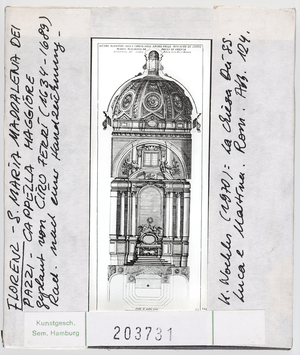 FLORENZ - S. MARIA MADDALENA DEI
PAZZI - CAPPELLA MAGGIORE
geplant von CIRO FERRI (1634-1689)
Rad. nach eine Handzeichnung -
K. Noehles (1970): La chiesa dei SS.
Luca e Martina. Rom. Ab. 124.
Kunstgesch.
Sem. Hamburg
203731